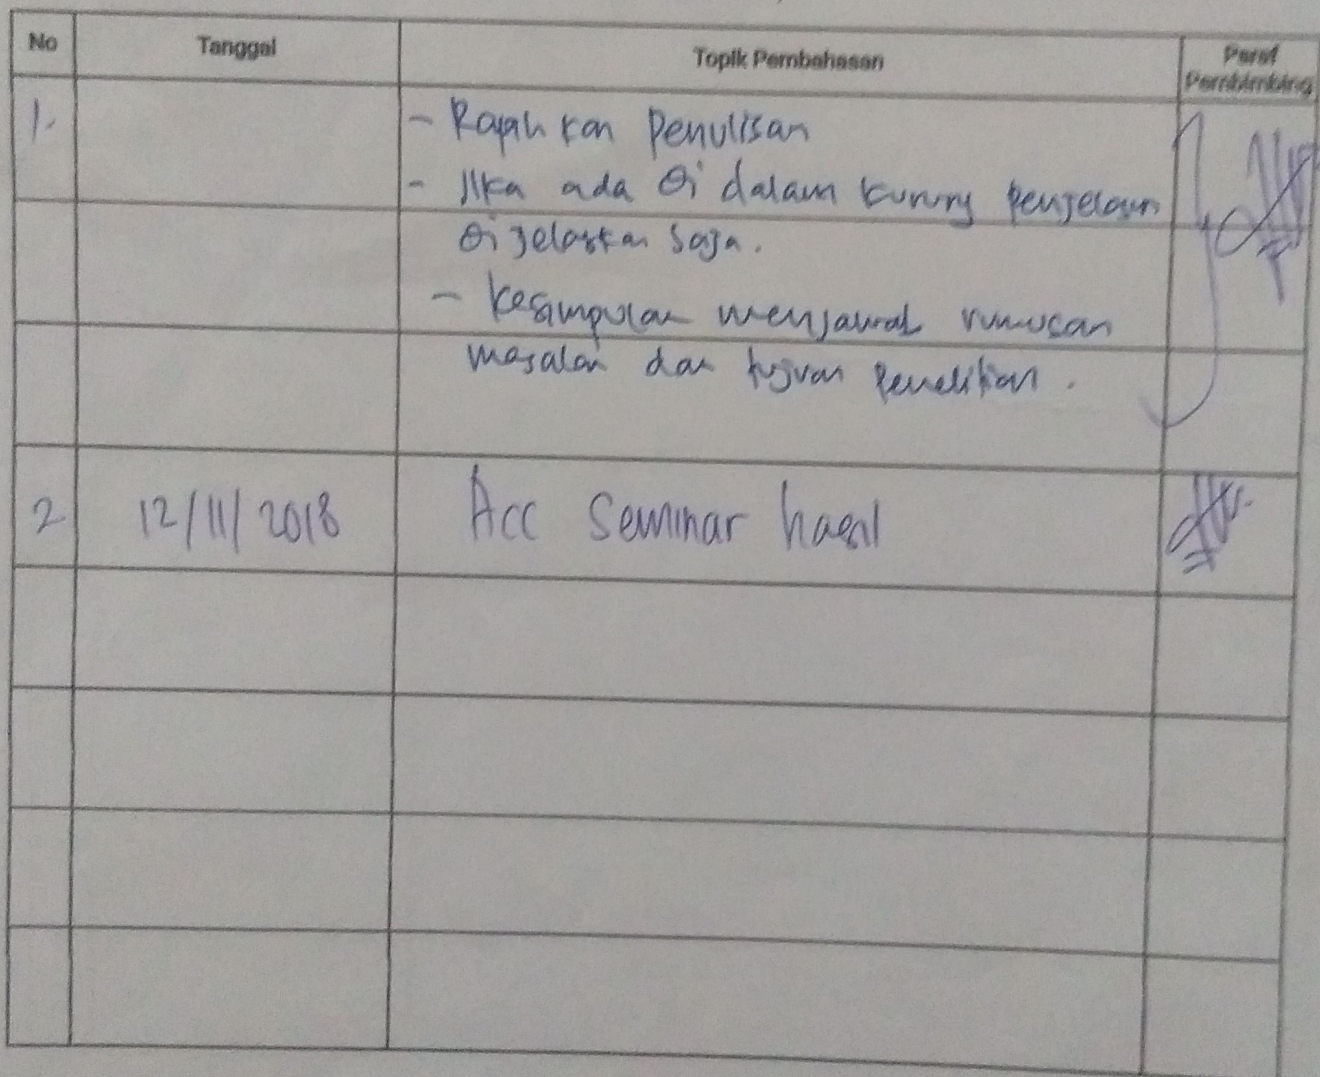 No Tanggal Topik Pembahasan Paraf
Pembimbing
1. - Rapih kan Penulisan
- Jika ada di dalam kurung Penjelasan
di jelaskan saja.
- Kesimpulan menjawab rumusan
masalah dan tujuan Penelitian.
2 12/11/2018 Acc Seminar hasil